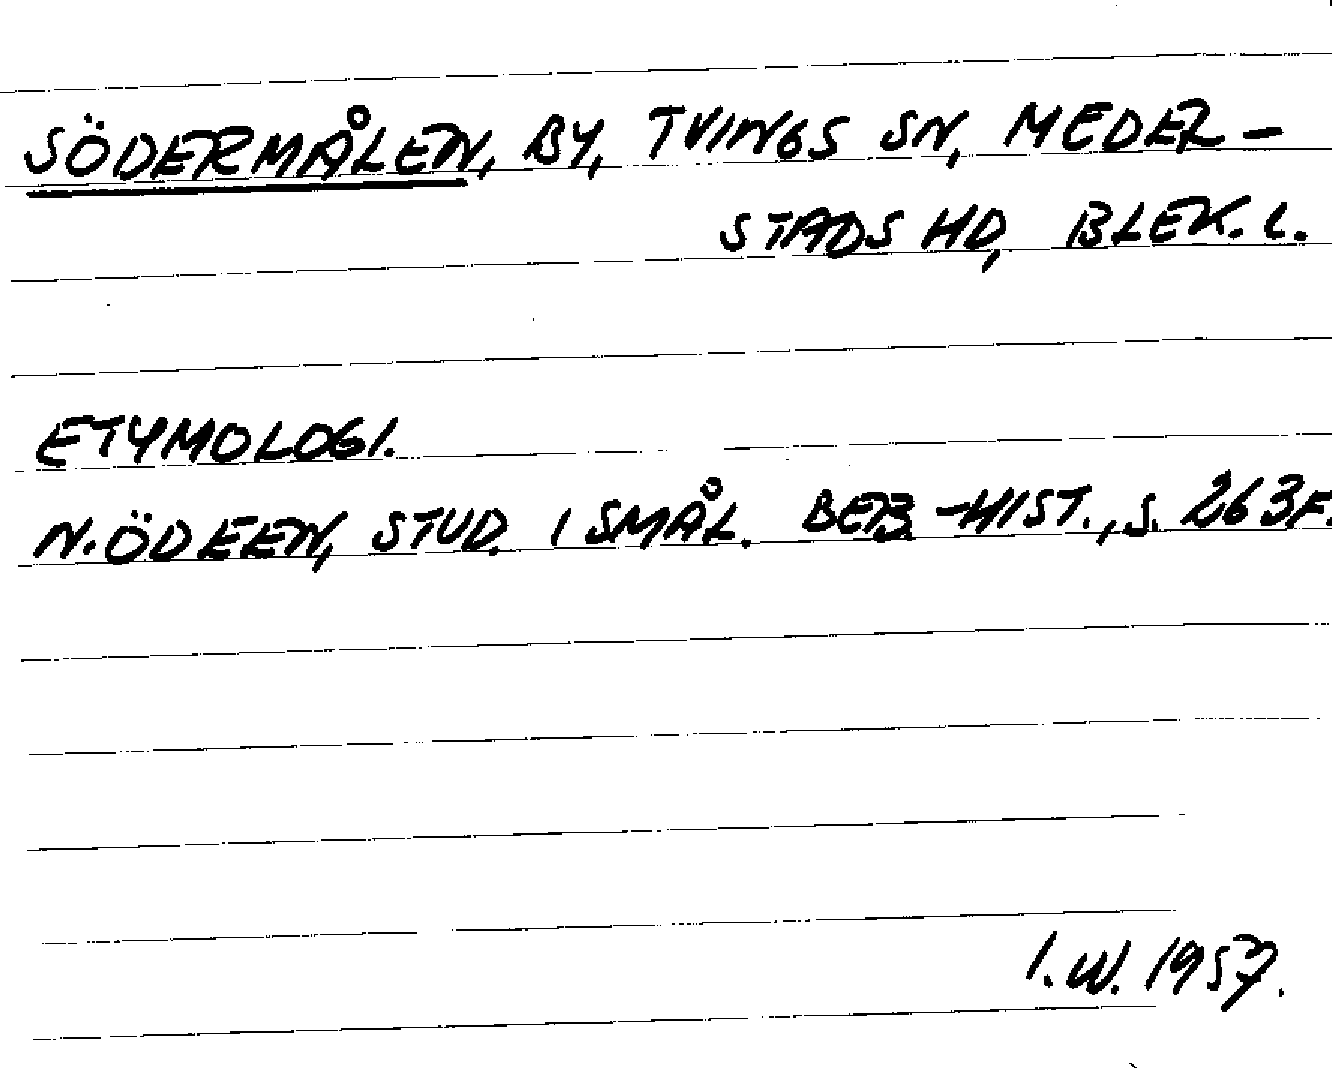 SÖDERMÅLEN, BY, TVINGS SN, MEDER-
STADS HD, BLEK. L.
ETYMOLOGI.
N. ÖDEEN, STUD. I SMÅL. BEB.-HIST., S. 263F.
I.W. 1957.